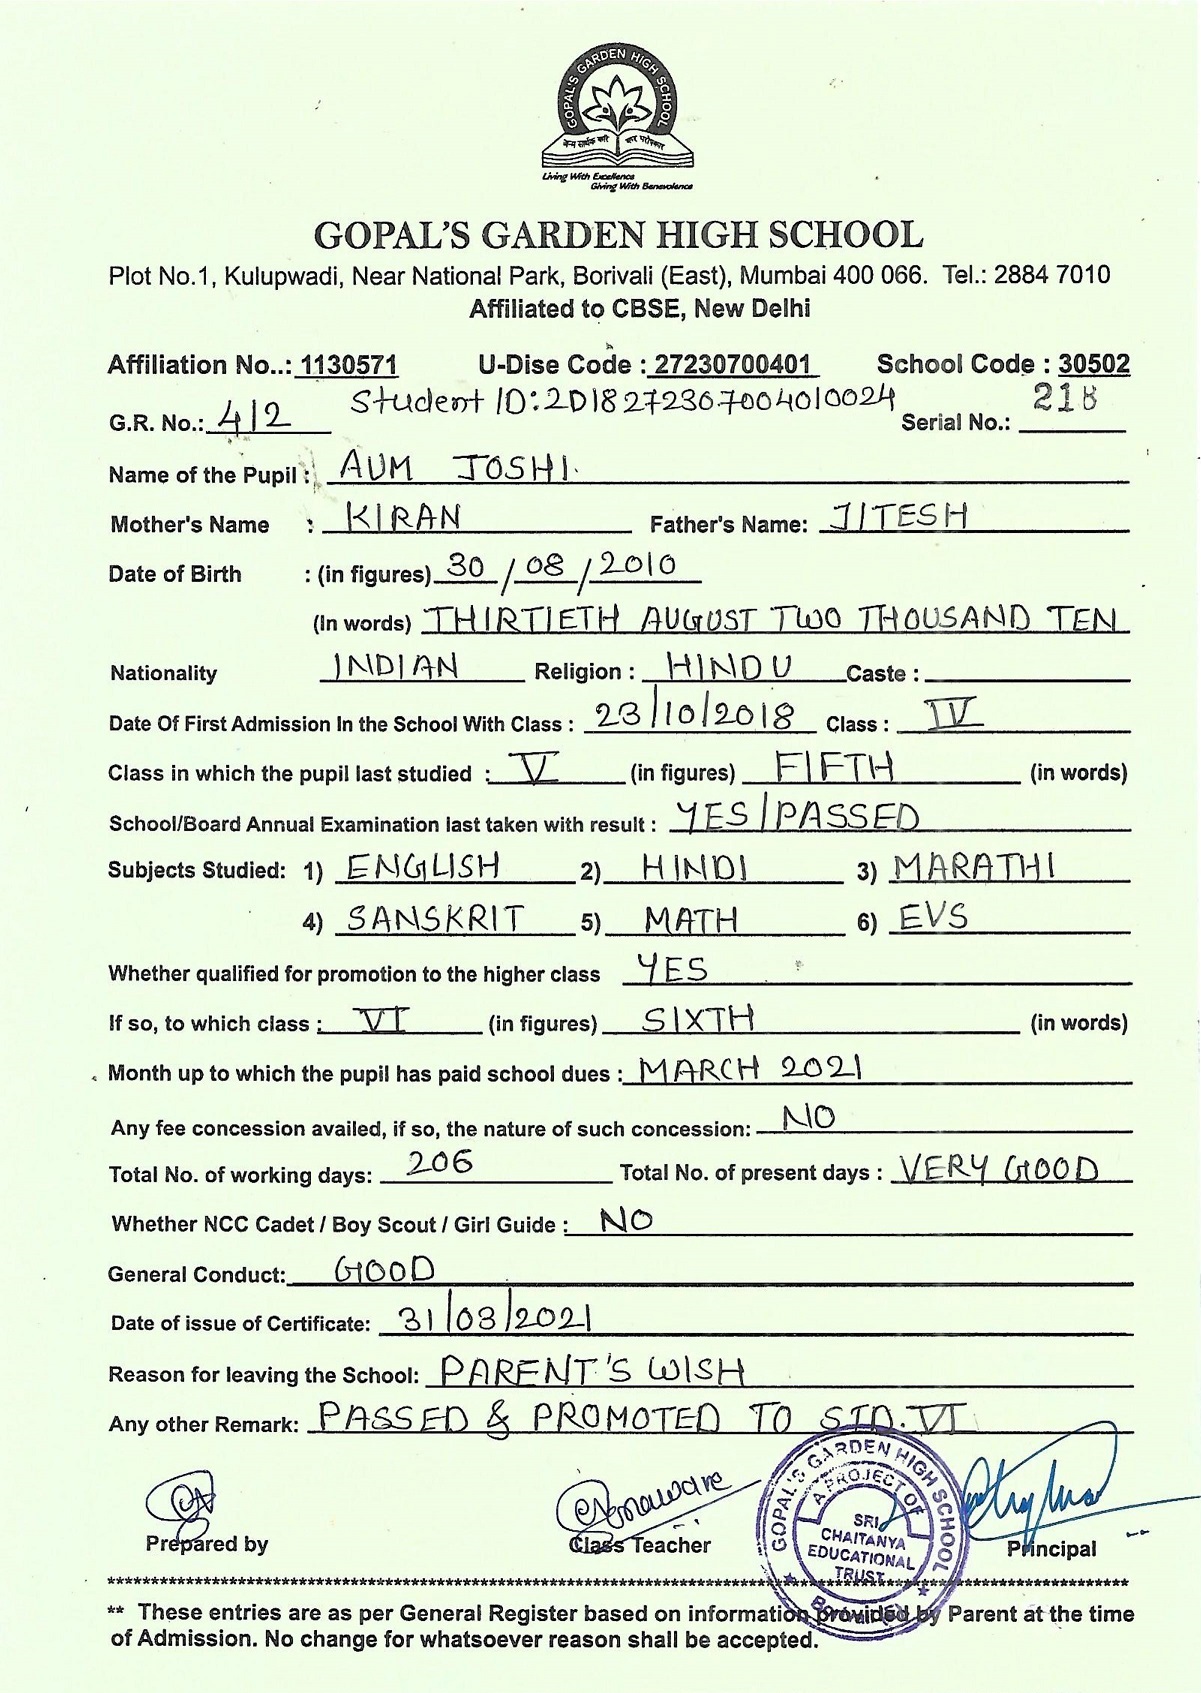 GOPAL'S GARDEN HIGH SCHOOL
Living With Excellence
Giving With Benevolence
GOPAL'S GARDEN HIGH SCHOOL
Plot No.1, Kulupwadi, Near National Park, Borivali (East), Mumbai 400 066. Tel.: 2884 7010
Affiliated to CBSE, New Delhi
Affiliation No..: 1130571 U-Dise Code : 27230700401 School Code : 30502
Student ID: 2018272307004010024
G.R. No.: 412 Serial No.: 218
Name of the Pupil : AUM JOSHI.
Mother's Name : KIRAN Father's Name: JITESH
Date of Birth : (in figures) 30 / 08 / 2010
(In words) THIRTIETH AUGUST TWO THOUSAND TEN
Nationality INDIAN Religion : HINDU Caste :
Date Of First Admission In the School With Class : 23/10/2018 Class : IV
Class in which the pupil last studied : V (in figures) FIFTH (in words)
School/Board Annual Examination last taken with result : YES/PASSED
Subjects Studied: 1) ENGLISH 2) HINDI 3) MARATHI
4) SANSKRIT 5) MATH 6) EVS
Whether qualified for promotion to the higher class YES
If so, to which class : VI (in figures) SIXTH (in words)
Month up to which the pupil has paid school dues : MARCH 2021
Any fee concession availed, if so, the nature of such concession: NO
Total No. of working days: 206 Total No. of present days : VERY GOOD
Whether NCC Cadet / Boy Scout / Girl Guide : NO
General Conduct: GOOD
Date of issue of Certificate: 31/03/2021
Reason for leaving the School: PARENT'S WISH
Any other Remark: PASSED & PROMOTED TO STD. VI
GOPAL'S GARDEN HIGH SCHOOL
A PROJECT OF
SRI
CHAITANYA
EDUCATIONAL
TRUST
Prepared by Class Teacher Principal
** These entries are as per General Register based on information provided by Parent at the time
of Admission. No change for whatsoever reason shall be accepted.